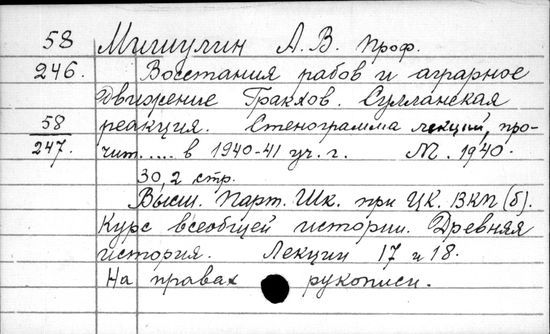 58 Мишулин А. В. проф.
246. Восстания рабов и аграрное
движение Гракхов. Сулланская
58 реакция. Стенограмма лекций, про-
247. чит..... в 1940-41 уч. г. М. 1940.
30, 2 стр.
Высш. Парт. Шк. при ЦК. ВКП(б).
Курс всеобщей истории. Древняя
история. Лекции 17 и 18.
На правах рукописи.